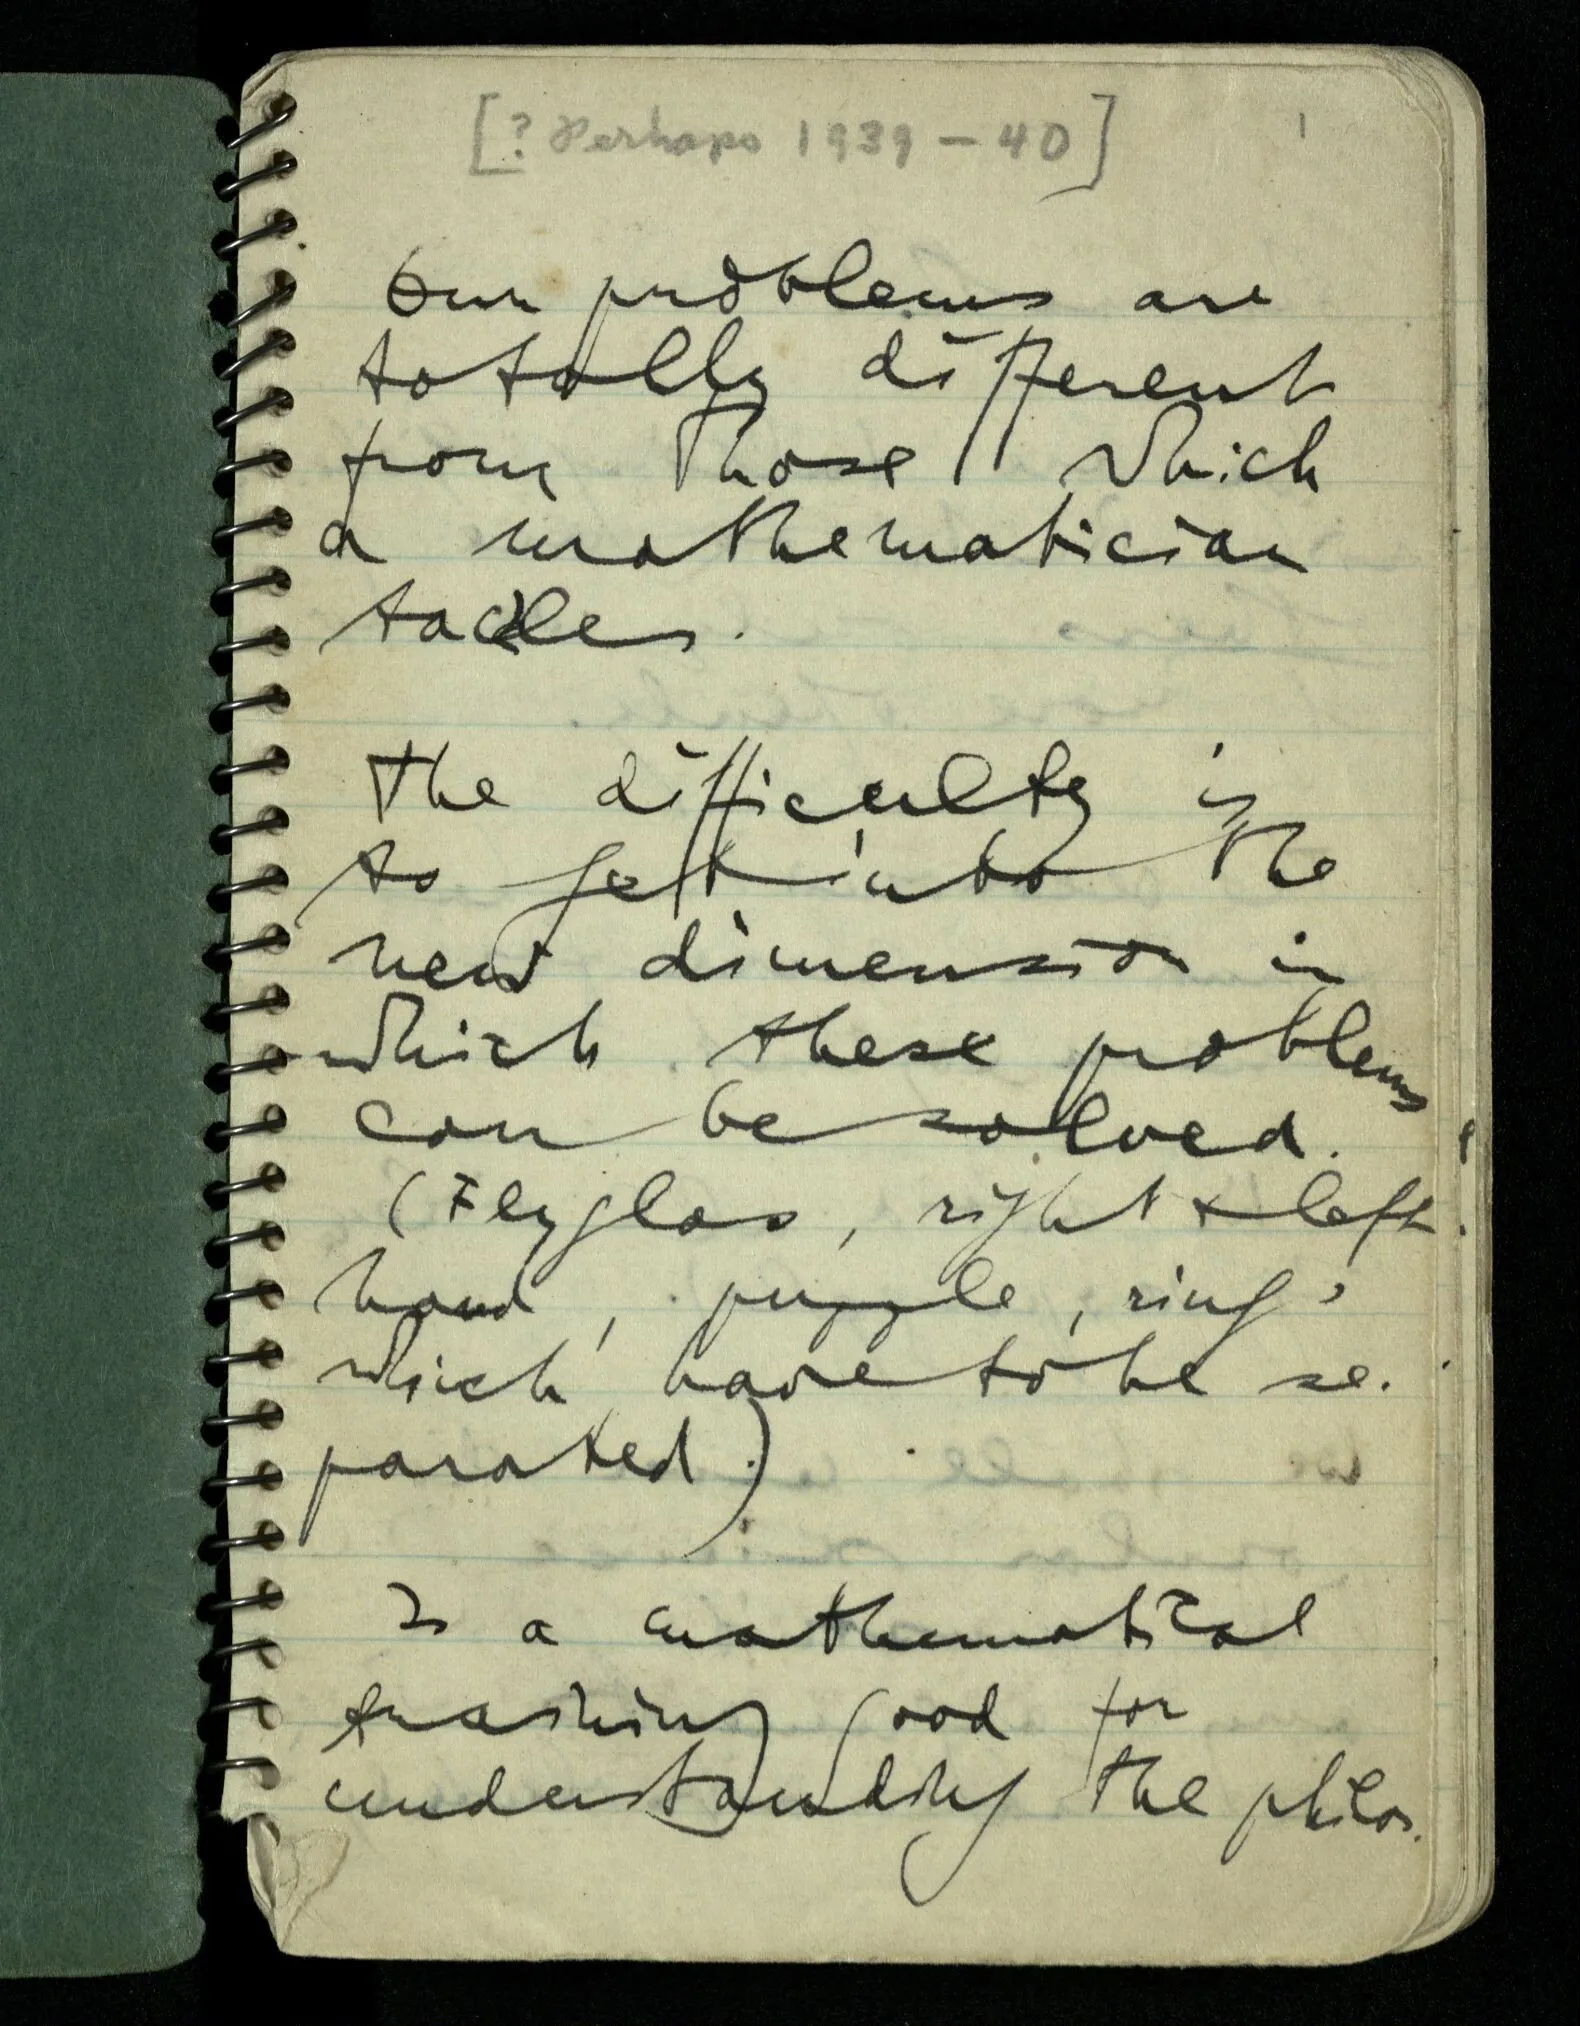 [? Perhaps 1939 – 40]
1
Our problems are
totally different
from those which
a mathematician
tackles.
The difficulty is
to get into the
new dimension in
which these problems
can be solved.
(Flyglas, right + left
hand, puzzle, rings
which have to be se-
parated.)
Is a mathematical
training good for
understanding the philos.